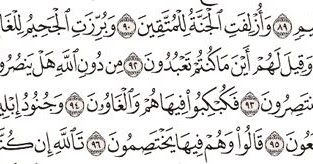 ـيمٍ ٨٩ وَأُزْلِفَتِ ٱلْجَنَّةُ لِلْمُتَّقِينَ ٩٠ وَبُرِّزَتِ ٱلْجَحِيمُ لِلْغَا
وَقِيلَ لَهُمْ أَيْنَ مَا كُنتُمْ تَعْبُدُونَ ٩٢ مِن دُونِ ٱللَّهِ هَلْ يَنصُرُو
ـنتَصِرُونَ ٩٣ فَكُبْكِبُوا۟ فِيهَا هُمْ وَٱلْغَاوُۥنَ ٩٤ وَجُنُودُ إِبْلِيـ
ـعُونَ ٩٥ قَالُوا۟ وَهُمْ فِيهَا يَخْتَصِمُونَ ٩٦ تَٱللَّهِ إِن كُنَّـ